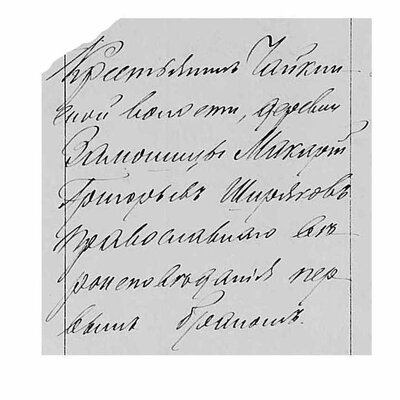 Крестьянинъ Чайкин-
ской волости, деревни
Замошицы Макарій
Григорьевъ Ширяковъ
православнаго вѣ-
роисповѣданія пер-
вымъ бракомъ.